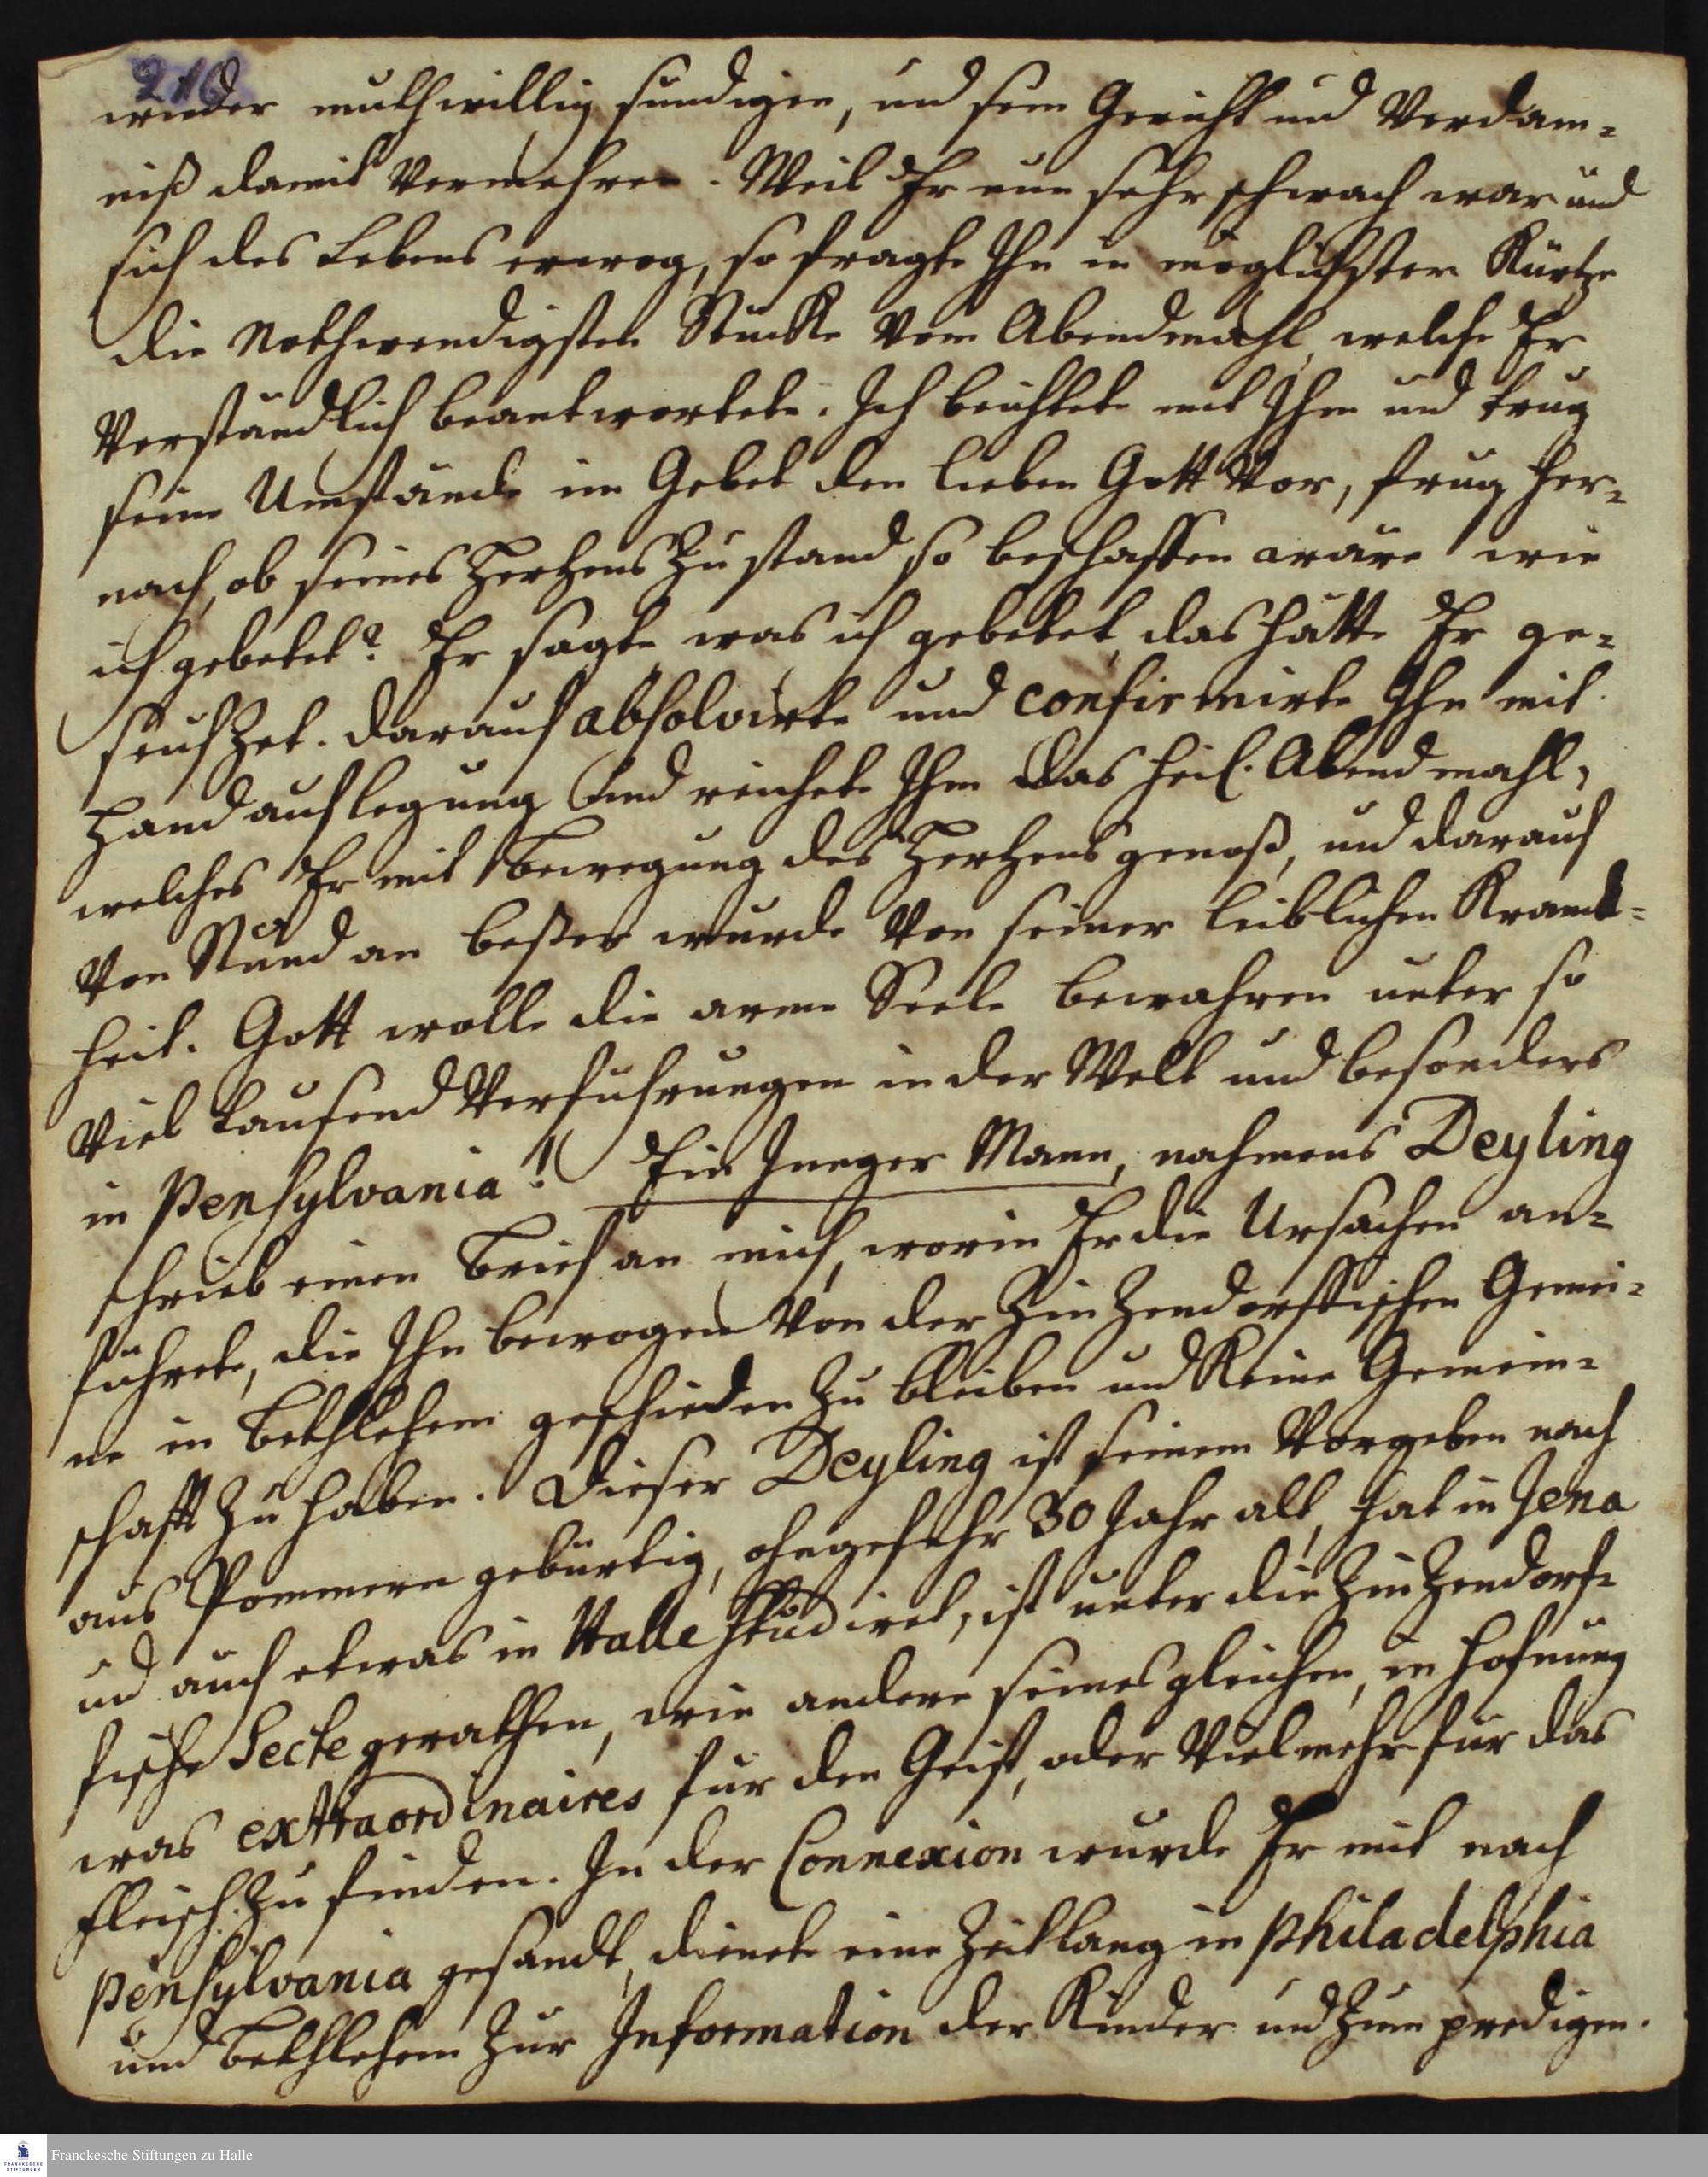 216
wieder muthwillig sündigen, und sein Gericht und Verdam-
niß damit Vermehren. Weil Er nun sehr schwach war und
sich des Lebens erwog, so fragte Ihn in möglichster Kürtze
die Nothwendigsten Stücke Vom Abendmahl, welche Er
Verständlich beantwortete. Ich beichtete mit Ihm und trug
seine Umstände im Gebet dem lieben Gott Vor, frug her-
nach, ob seines Hertzens Zustand so beschaffen wäre wie
ich gebetet? Er sagte was ich gebetet, das hätte Er ge-
seufzet. Darauf absolvirte und confirmirte Ihn mit
Handauflegung und reichete Ihm das heil. Abendmahl,
welches Er mit Bewegung des Hertzens genoß, und darauf
Von Stund an beßer wurde Von seiner leiblichen Kranck-
heit. Gott wolle die arme Seele bewahren unter so
Viel tausend Verführungen in der Welt und besonders
in Pensylvania! Ein Junger Mann, nahmens Deyling
schrieb einen Brief an mich, worin Er die Ursachen an-
führete, die Ihn bewogen Von der Zinzendorffischen Gemei-
ne in Bethlehem geschieden zu bleiben und Keine Gemein-
schafft zu haben. Dieser Deyling ist seinem Vorgeben nach
aus Pommern gebürtig, ohngefehr 30 Jahr alt, hat in Jena
und auch etwas in Halle studiret, ist unter die Zinzendorf-
fische Secte gerathen, wie andere seines gleichen, in Hofnung
was extraordinaires für den Geist, oder Vielmehr für das
Fleisch zu finden. In der Connexion wurde Er mit nach
Pensylvania gesandt, dienete eine Zeitlang in Philadelphia
und Bethlehem zur Information der Kinder und zum predigen.
Franckesche Stiftungen zu Halle
FRANCKESCHE
STIFTUNGEN